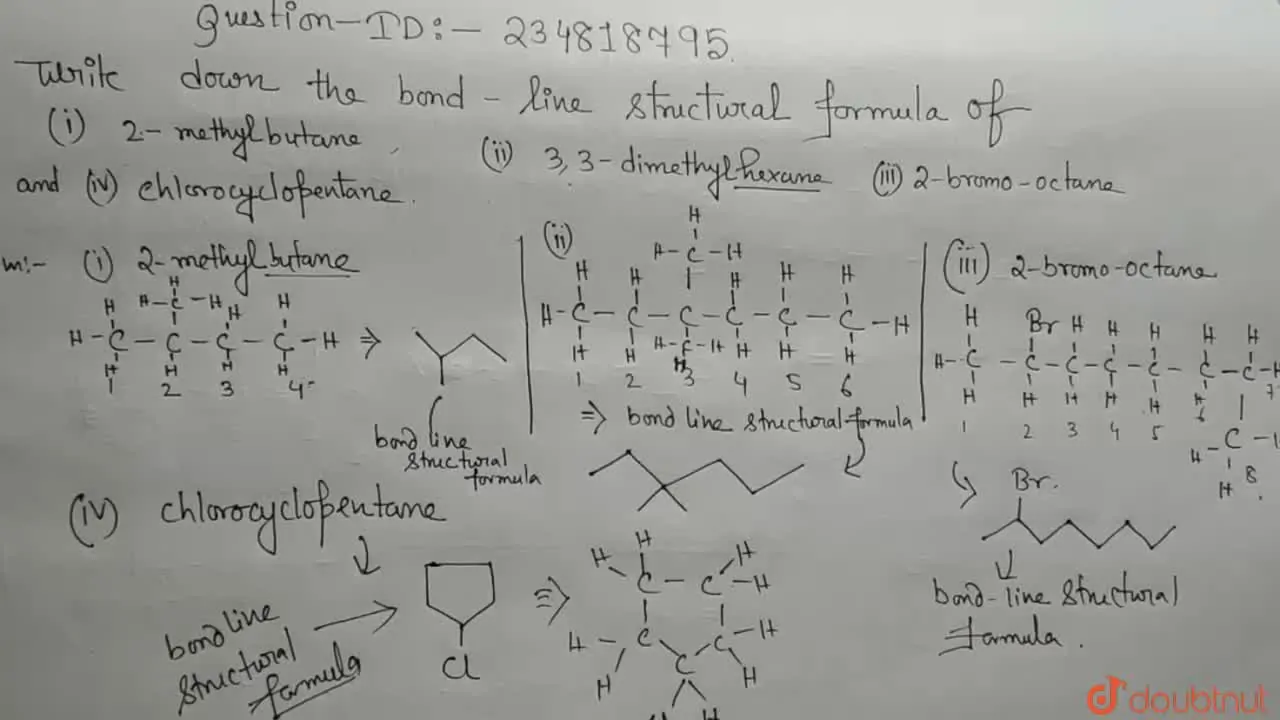 Question-ID:- 234818795.
Write down the bond-line structural formula of
(i) 2-methylbutane, (ii) 3,3-dimethylhexane (iii) 2-bromo-octane
and (iv) chlorocyclopentane.
(i) 2-methylbutane
H
H-C-H
H H H
H-C-C-C-C-H
H H H H
1 2 3 4
=>
bond line
structural
formula
(ii)
H
H-C-H
H H H H H
H-C-C-C-C-C-C-H
H H H-C-H H H H
H
1 2 3 4 5 6
=> bond line structural formula
(iii) 2-bromo-octane
H Br H H H H H
H-C-C-C-C-C-C-C-H
H H H H H H
1 2 3 4 5 6 7
H-C-
H 8.
Br.
bond-line structural
formula.
(iv) chlorocyclopentane
bond line
structural
formula
Cl
=>
H H H
C-C-H
H-C C-H
H C H
H
doubtnut